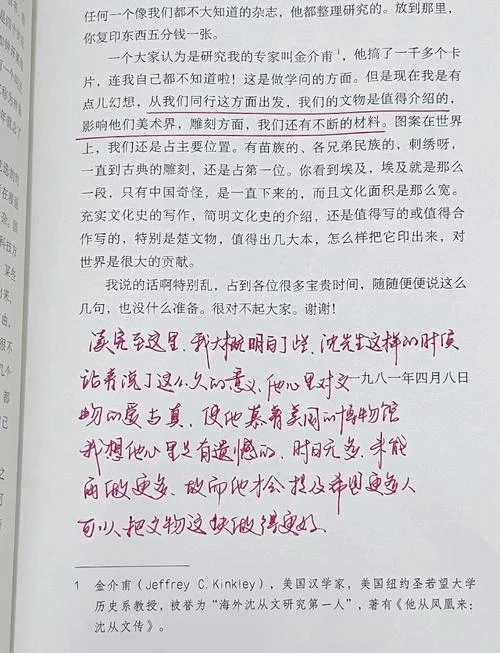 任何一个像我们都不大知道的杂志，他都整理研究的。放到那里，
你复印东西五分钱一张。
一个大家认为是研究我的专家叫金介甫¹，他搞了一千多个卡
片，连我自己都不知道啦！这是做学问的方面。但是现在我是有
点儿幻想，从我们同行这方面出发，我们的文物是值得介绍的，
影响他们美术界，雕刻方面，我们还有不断的材料。图案在世界
上，我们还是占主要位置。有苗族的、各兄弟民族的，刺绣呀，
一直到古典的雕刻，还是占第一位。你看到埃及，埃及就是那么
一段，只有中国奇怪，是一直下来的，而且文化面积是那么宽。
充实文化史的写作，简明文化史的介绍，还是值得写的或值得合
作写的，特别是楚文物，值得出几大本，怎么样把它印出来，对
世界是很大的贡献。
我说的话啊特别乱，占到各位很多宝贵时间，随随便便说这么
几句，也没什么准备。很对不起大家。谢谢！
读完至这里，我大概明白了些，沈先生这样的时候
站着说了这么久的意义，他心里对文
一九八一年四月八日
物的爱占真，使他慕着美国的博物馆
我想他心里是有遗憾的，时日无多，未能
再做更多，故而他才会提及希望更多人
可以把文物这块做得更好
1 金介甫（Jeffrey C. Kinkley），美国汉学家，美国纽约圣若望大学
历史系教授，被誉为“海外沈从文研究第一人”，著有《他从凤凰来：
沈从文传》。